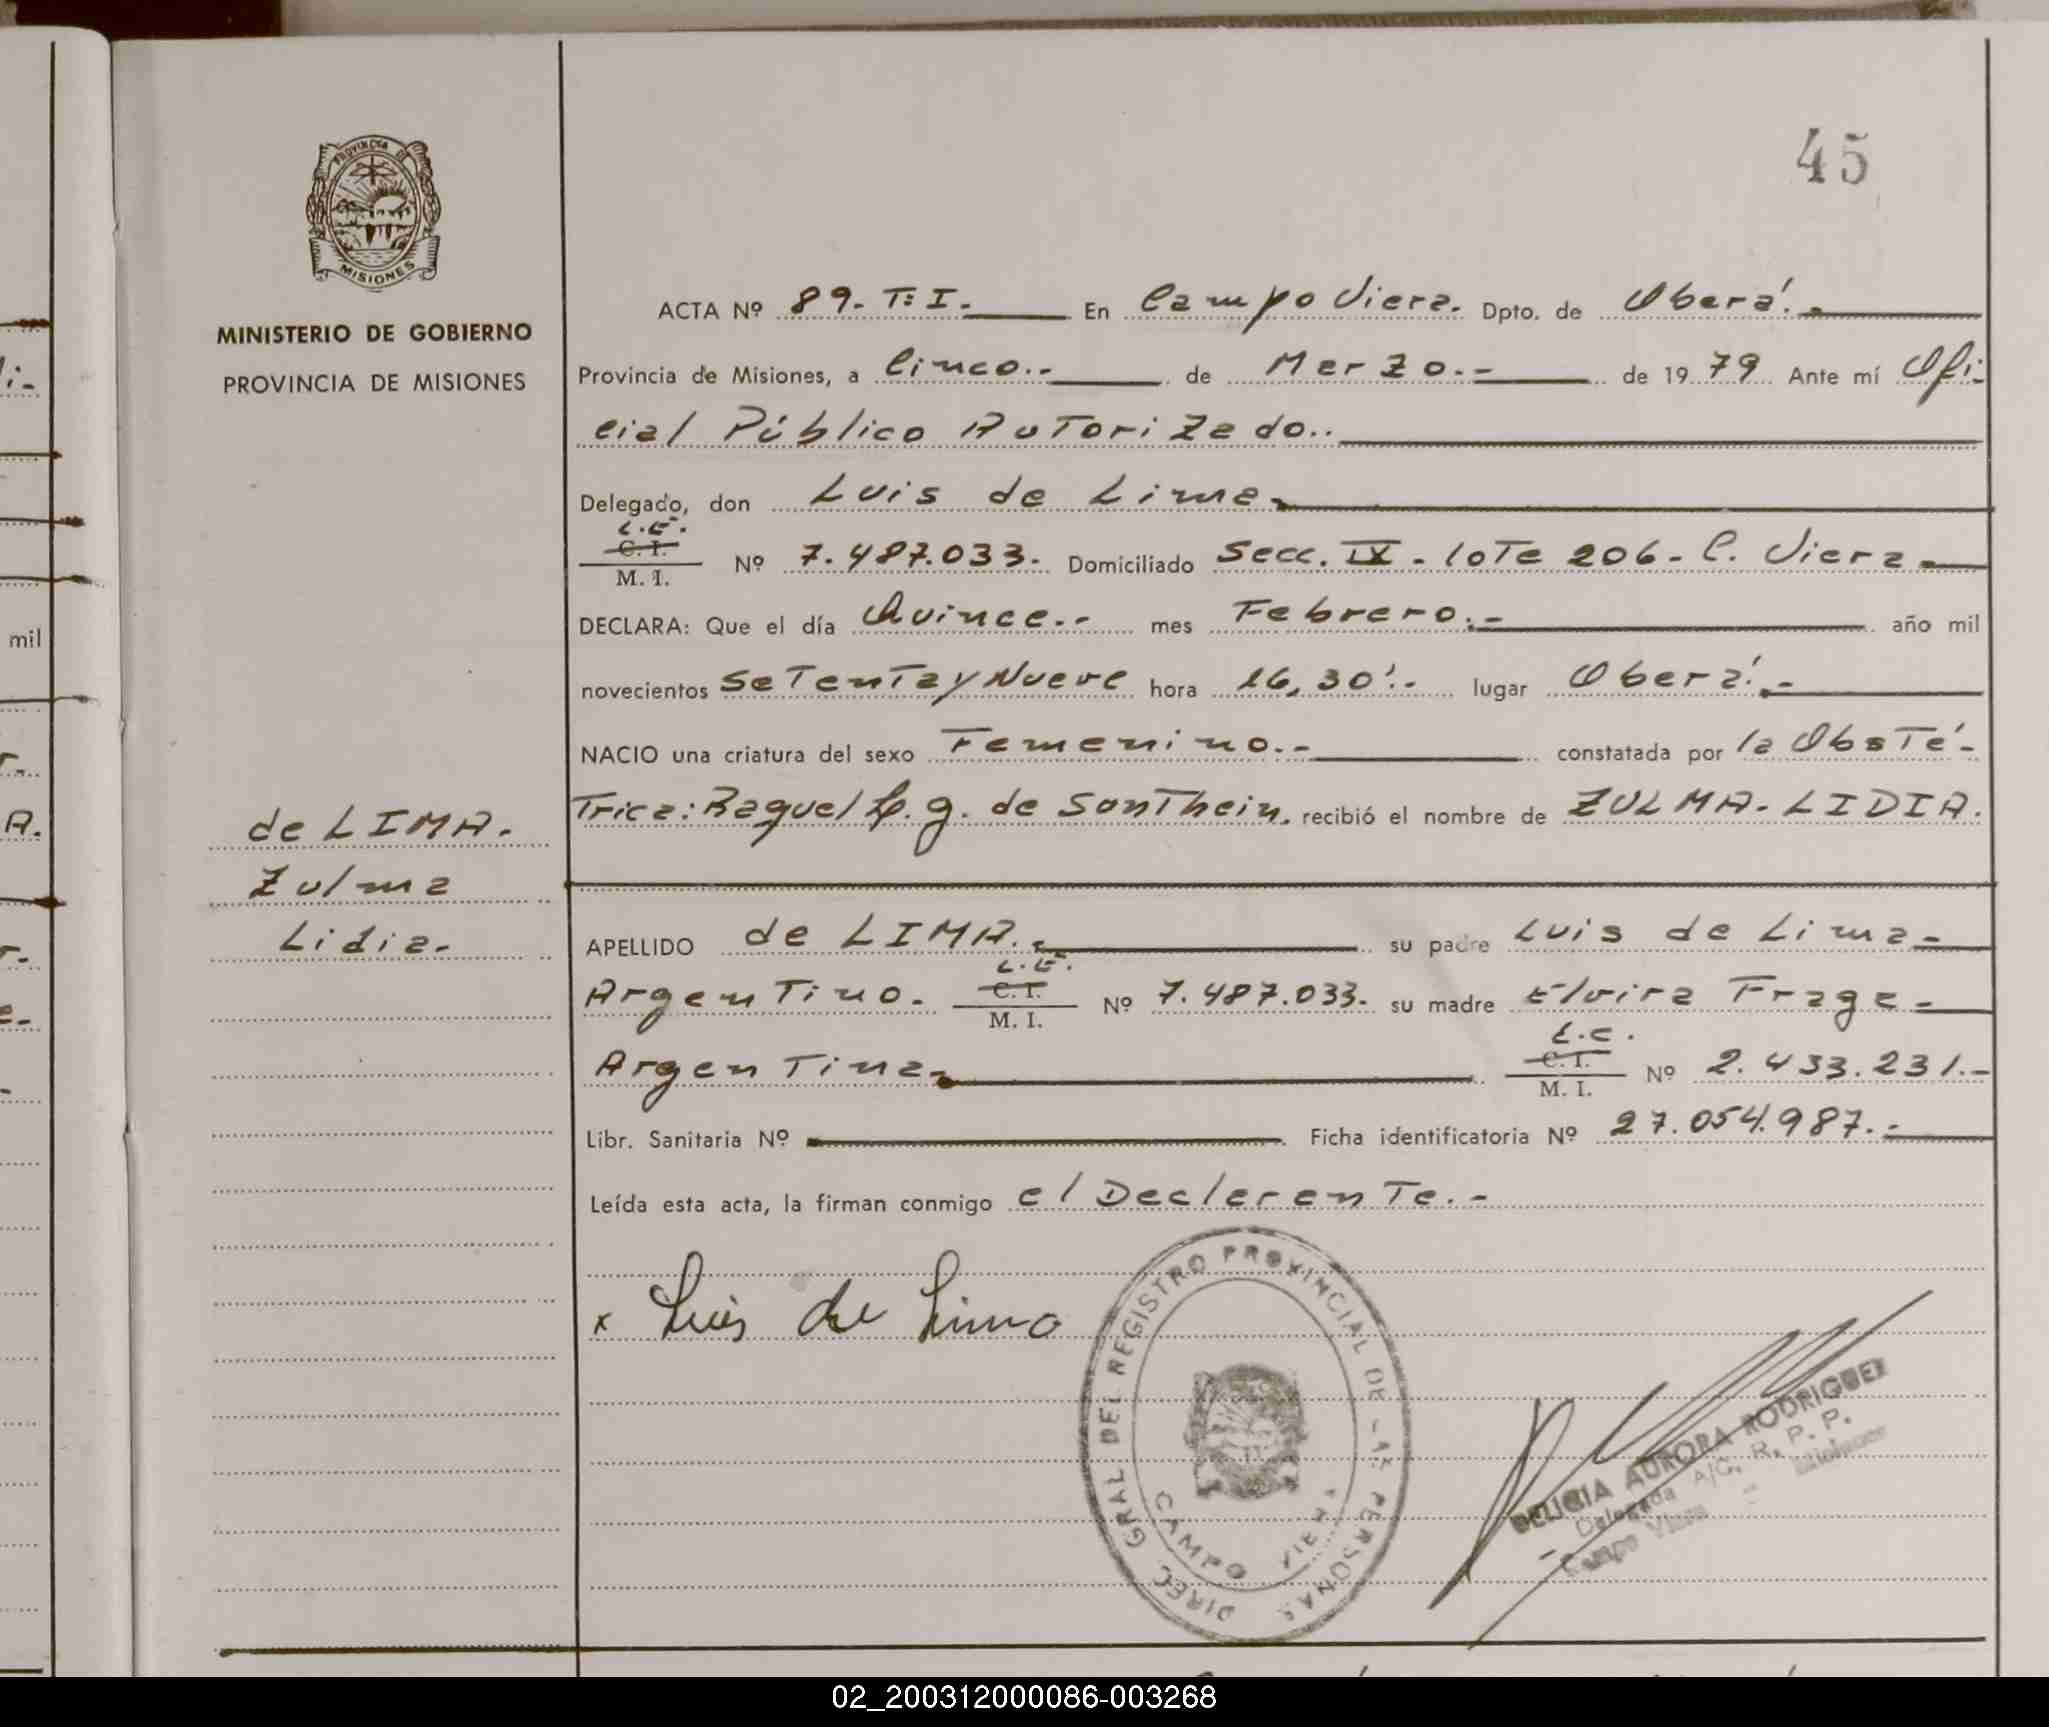 45
PROVINCIA DE
MISIONES
MINISTERIO DE GOBIERNO
PROVINCIA DE MISIONES
ACTA Nº 89. T: I. En Campo Viera. Dpto. de Oberá.
Provincia de Misiones, a Cinco.- de Marzo.- de 1979 Ante mí Ofi-
cial Público Autorizado..
Delegado, don Luis de Lima
L.E.
C. I.
M. I.
Nº 7.487.033. Domiciliado Secc. IX. lote 206- C. Viera
DECLARA: Que el día Quince.- mes Febrero.- año mil
novecientos Setenta y Nueve hora 16,30'.- lugar Oberá.-
NACIO una criatura del sexo Femenino.- constatada por la Obsté-
trica: Raquel L. g. de Sonthein. recibió el nombre de ZULMA. LIDIA.
de LIMA.
Zulma
Lidia.
APELLIDO de LIMA. su padre Luis de Lima
L.E.
Argentino. C. I. Nº 7.487.033. su madre Elvira Fraga
M. I.
L.C.
Argentina C. I. Nº 2.433.231.-
M. I.
Libr. Sanitaria Nº Ficha identificatoria Nº 27.054.987.-
Leída esta acta, la firman conmigo el Declarante.-
x Luis de Lima
DIREC. GRAL DEL REGISTRO PROVINCIAL DE LAS PERSONAS
CAMPO VIERA
DELICIA AURORA RODRIGUEZ
Delegada A/C. R. P. P.
Campo Viera - Misiones
mil
02_200312000086-003268